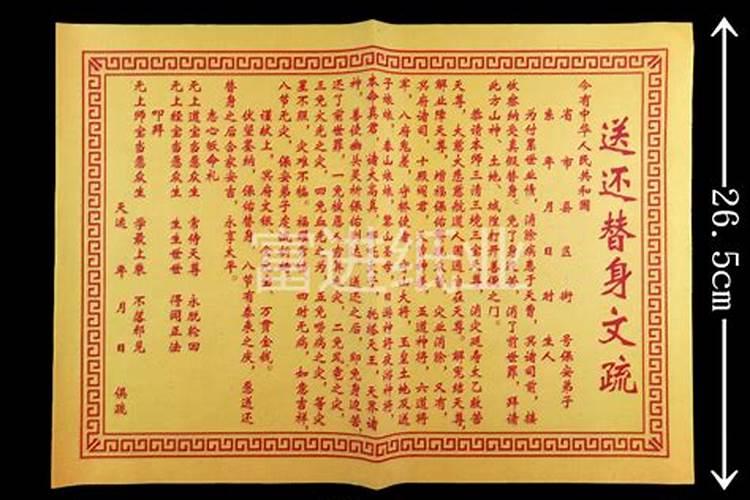 送还替身文疏
今有中华人民共和国
省 市 县 区 街 号保安弟子
系 年 月 日 时 生人
为付累世业债，消除病患于天曹，冥诸司前，接
收察纳受真假替身。免了灾殃，消了前世罪，拜请
此方山神、土地、城隍大开善便之门。
恭请本师三清三境三 消灾延寿太乙救苦
天尊，大慈大悲慈航道人圆通自在天尊。解冤结天尊，
解业障天尊，增福保佑 灾业消除，又有
冥府诸司，十殿阎君， 五道神将，六道将
军，八府鬼差，守狱使 大将，玉皇土地及送
子娘娘，泰山娘娘，黎山圣母，日游神将夜游神将，
本命真君，诸大高真， 托塔天王，天界诸
神，善使幽头灵所保佑 送还之后，即免身边苦，
还了前世罪，一免 灾，二免风雹之灾，
三免火光之灾，四免血 五免唔病之灾，等灾
星不照，灾难不临。福 四时无病，如意吉祥，
八节无灾，保安弟子
谨献上，冥府文银 万贯金钱。
伏望鉴纳，保佑替身，八节有泰来之庆，愿送还
替身之后合家安吉，永享太平。
志心皈命礼
无上道宝当愿众生 常侍天尊 永脱轮回
无上经宝当愿众生 生生世世 得闻正法
叩拜
无上师宝当愿众生 学最上乘 不落邪见
天运 年 月 日 俱疏
富进纸业
26.5cm